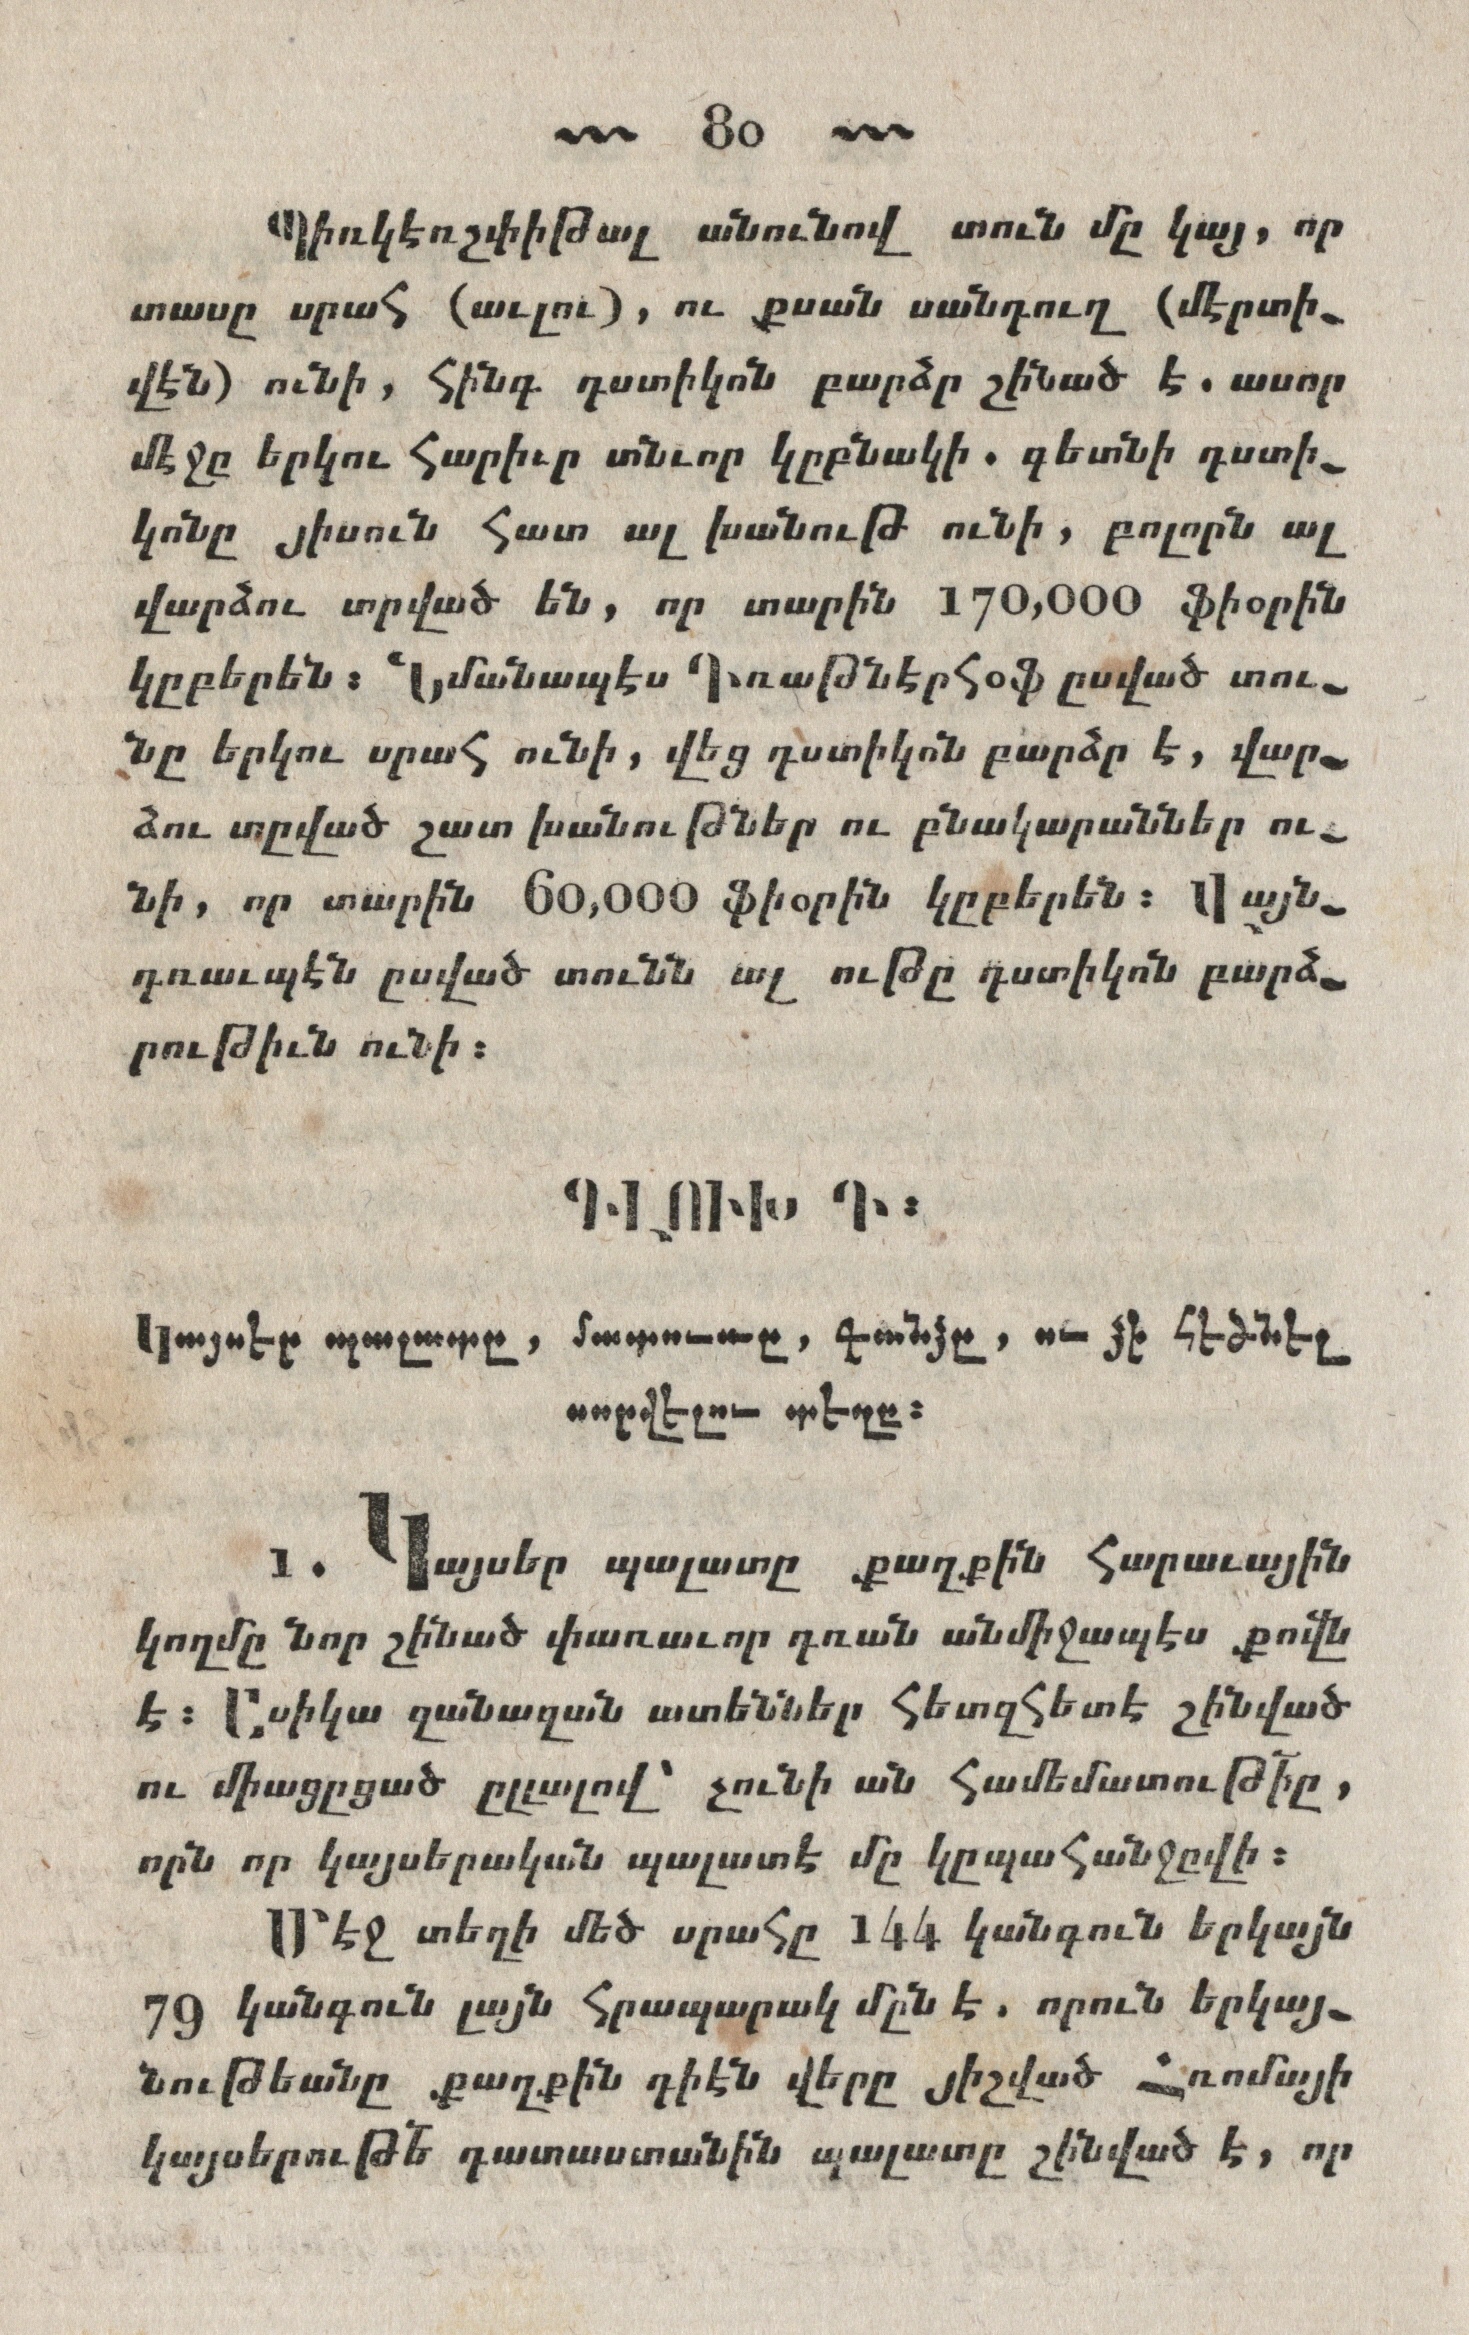 80
Պիռկէռշփիթալ անունով տուն մը կայ, որ
տասը սրահ (աւլու), ու քսան սանդուղ (մէրտի-
վէն) ունի, հինգ դստիկոն բարձր շինած է. ասոր
մէջը երկու հարիւր տնւոր կըբնակի. գետնի դստի-
կոնը յիսուն հատ ալ խանութ ունի, բոլորն ալ
վարձու տրված են, որ տարին 170,000 ֆիօրին
կըբերեն: Նմանապէս Դռաթնէրհօֆ ըսված տու-
նը երկու սրահ ունի, վեց դստիկոն բարձր է, վար-
ձու տըված շատ խանութներ ու բնակարաններ ու-
նի, որ տարին 60,000 ֆիօրին կըբերեն: Մայն-
դռաւպէն ըսված տունն ալ ութը դստիկոն բարձ-
րութիւն ունի:
ԳԼՈՒԽ Դ:
Կայսէր պալատը, մատուռը, գանձը, ու ձի հէծնէլ
սորվէլու տէղը:
1. Կայսեր պալատը քաղքին հարաւային
կողմը նոր շինած փառաւոր դռան անմիջապէս քովն
է: Ըսիկա զանազան ատեններ հետզհետէ շինված
ու միացըցած ըլլալով՝ չունի ան համեմատութիը,
որն որ կայսերական պալատէ մը կըպահանջըվի:
Մէջ տեղի մեծ սրահը 144 կանգուն երկայն
79 կանգուն լայն հրապարակ մըն է. որուն երկայ-
նութեանը քաղքին դիէն վերը յիշված Հռոմայի
կայսերութե դատաստանին պալատը շինված է, որ